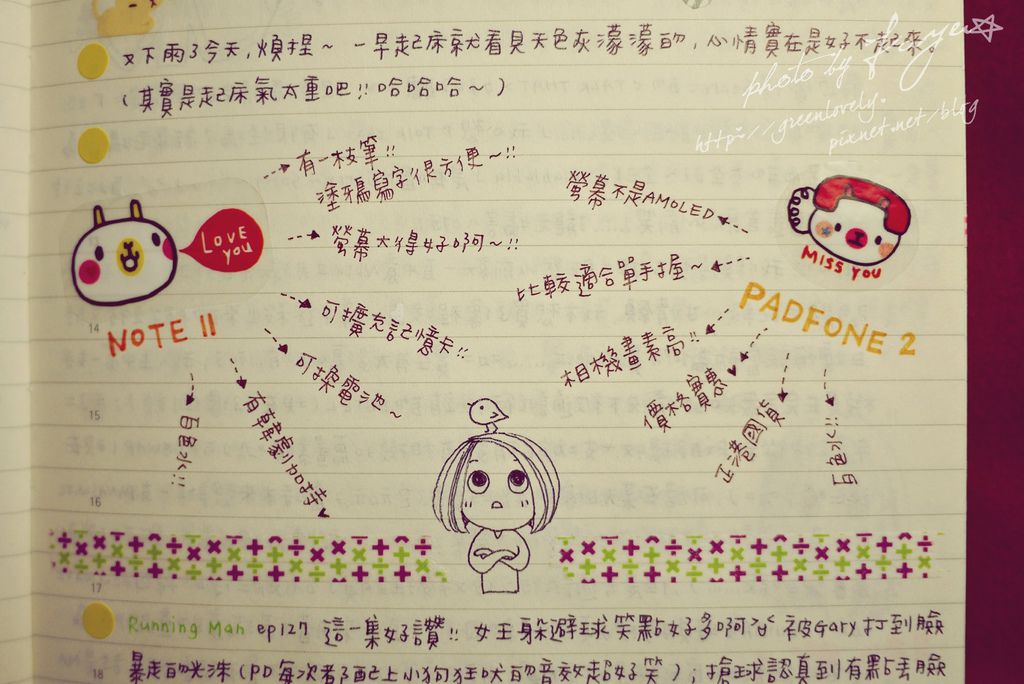 又下雨了今天,煩捏~ 一早起床就看見天色灰濛濛的,心情實在是好不起來。
(其實是起床氣太重吧!!哈哈哈~)
photo by
http://greenlovely.
pixnet.net/blog
有一枝筆!!
塗鴉寫字很方便~!!
螢幕大得好啊~!!
可擴充記憶卡!!
可換電池~
有韓劇加持
白色水!!
LOVE
you
NOTE II
螢幕不是AMOLED
比較適合單手握~
相機畫素高!!
價格實惠
正港國貨
白色水!!
MISS YOU
PADFONE 2
14
15
16
17
Running Man ep127 這一集好讚!! 女王躲避球笑點好多啊 被Gary打到臉
18
暴走的光洙(PD每次都配上小狗狂吠的音效超好笑);搶球認真到有點丟臉